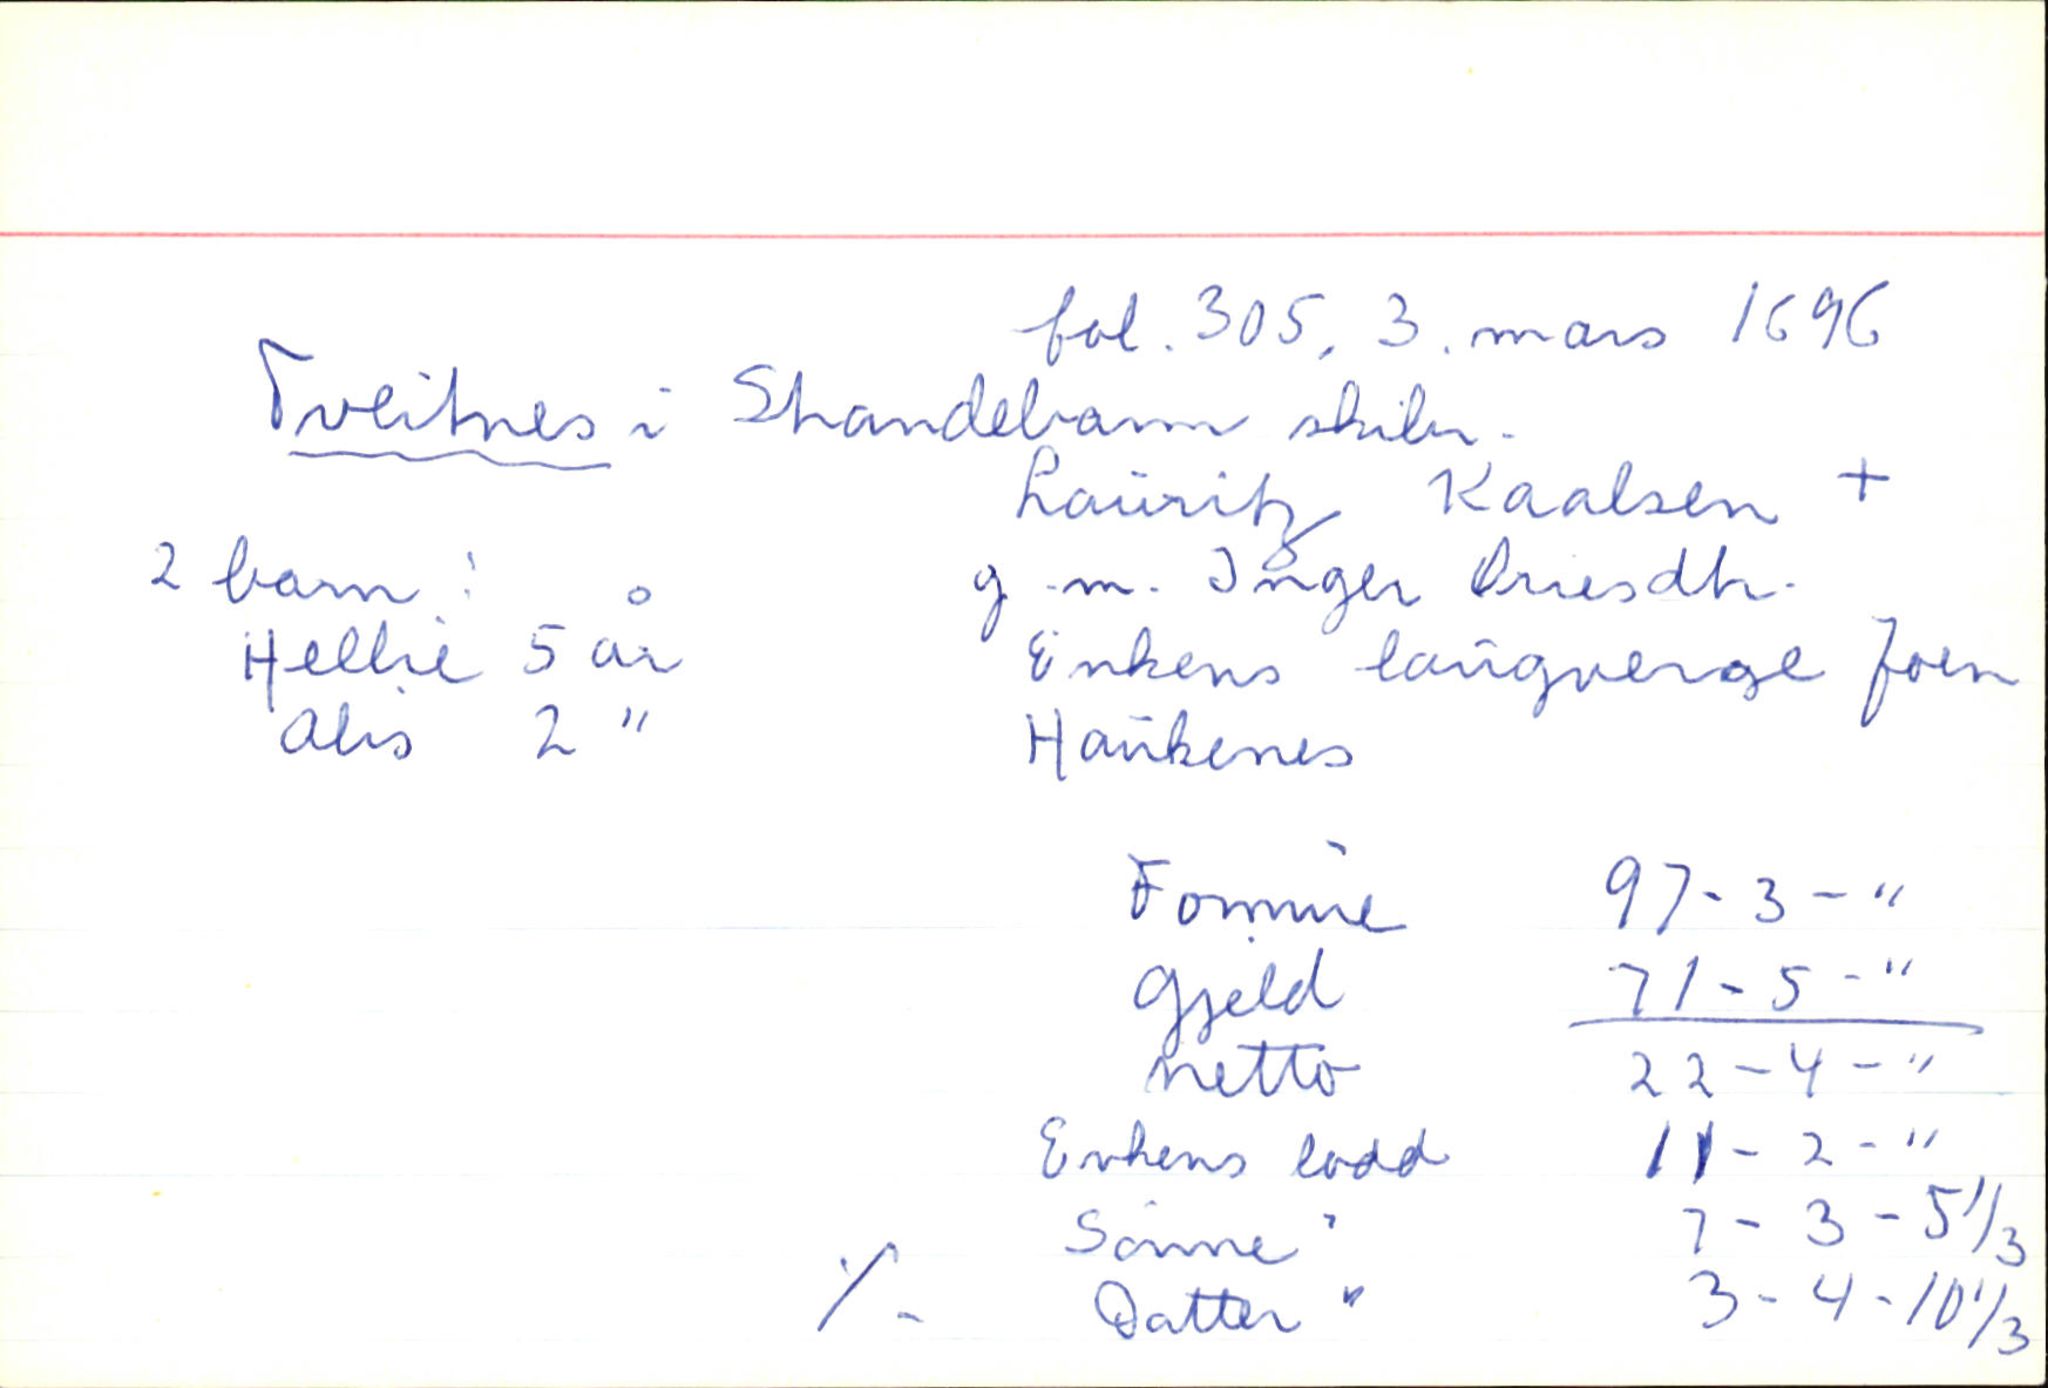 fol. 305, 3. mars 1696
Tveitnes i Strandebarm skibr.
Lauritz Kaalsen +
2 barn: g.m. Inger Driesdtr.
Hellie 5 år Enkens laugverge Joen
Alis 2 " Haukenes
Formue 97-3-"
Gjeld 71-5-"
netto 22-4-"
Enkens lodd 11-2-"
Sønne " 7-3-5 1/3
./. Datter " 3-4-10 1/3